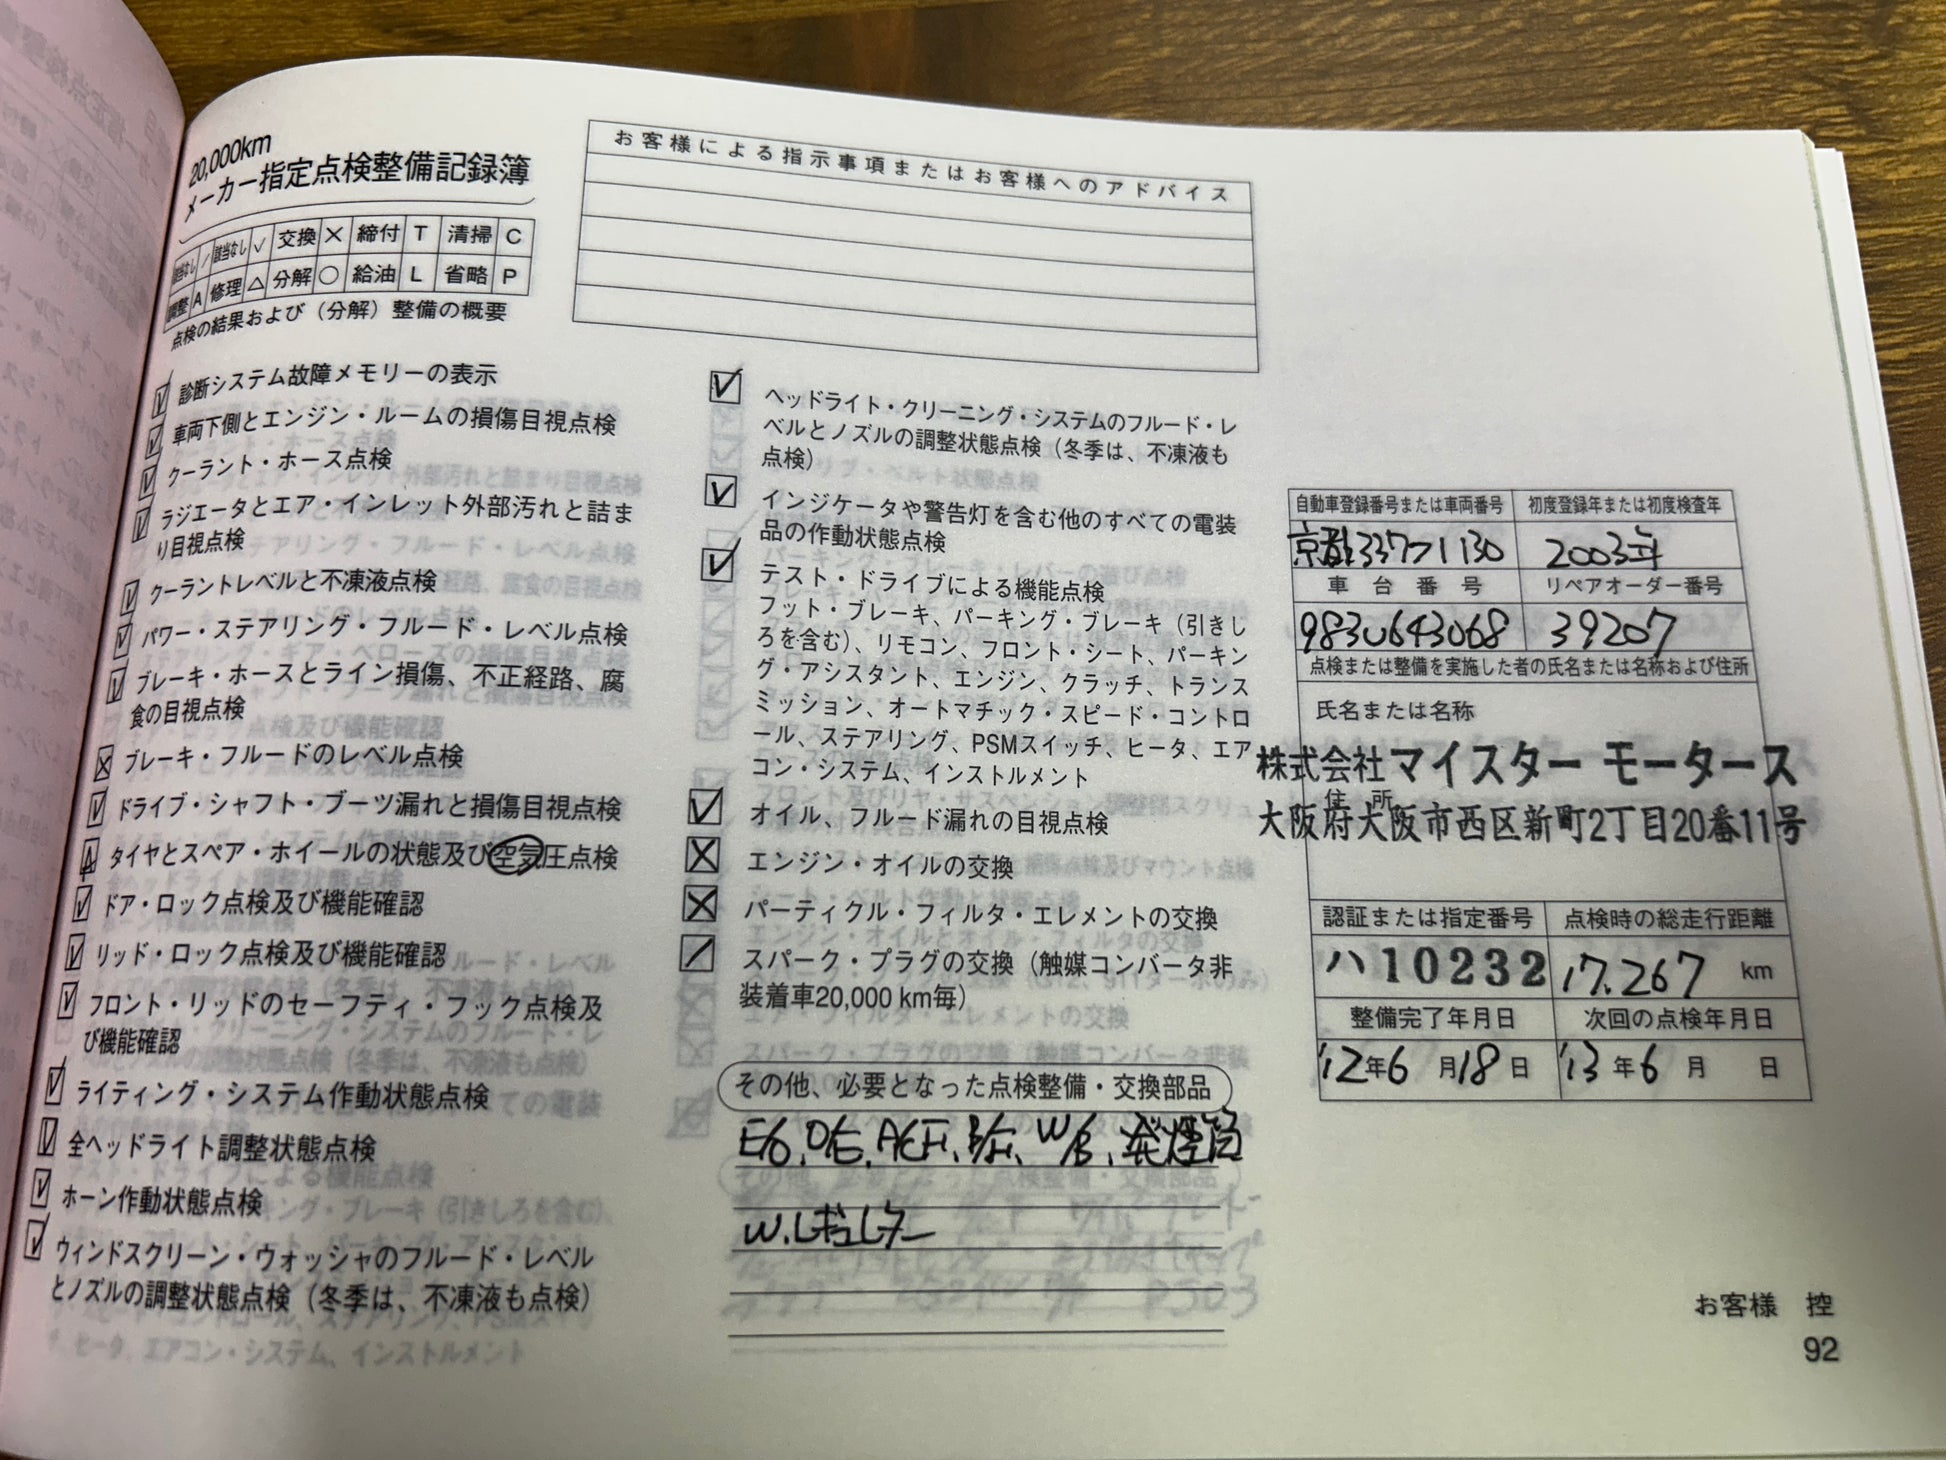 20,000km
メーカー指定点検整備記録簿
該当なし / 該当なし ✓ 交換 × 締付 T 清掃 C
調整 A 修理 △ 分解 ○ 給油 L 省略 P
点検の結果および（分解）整備の概要
診断システム故障メモリーの表示
車両下側とエンジン・ルームの損傷目視点検
クーラント・ホース点検
ラジエータとエア・インレット外部汚れと詰ま
り目視点検
クーラントレベルと不凍液点検
パワー・ステアリング・フルード・レベル点検
ブレーキ・ホースとライン損傷、不正経路、腐
食の目視点検
ブレーキ・フルードのレベル点検
ドライブ・シャフト・ブーツ漏れと損傷目視点検
A タイヤとスペア・ホイールの状態及び空気圧点検
ドア・ロック点検及び機能確認
リッド・ロック点検及び機能確認
フロント・リッドのセーフティ・フック点検及
び機能確認
ライティング・システム作動状態点検
全ヘッドライト調整状態点検
ホーン作動状態点検
ウィンドスクリーン・ウォッシャのフルード・レベル
とノズルの調整状態点検（冬季は、不凍液も点検）
お客様による指示事項またはお客様へのアドバイス
ヘッドライト・クリーニング・システムのフルード・レ
ベルとノズルの調整状態点検（冬季は、不凍液も
点検）
インジケータや警告灯を含む他のすべての電装
品の作動状態点検
テスト・ドライブによる機能点検
フット・ブレーキ、パーキング・ブレーキ（引きし
ろを含む）、リモコン、フロント・シート、パーキン
グ・アシスタント、エンジン、クラッチ、トランス
ミッション、オートマチック・スピード・コントロ
ール、ステアリング、PSMスイッチ、ヒータ、エア
コン・システム、インストルメント
オイル、フルード漏れの目視点検
エンジン・オイルの交換
パーティクル・フィルタ・エレメントの交換
スパーク・プラグの交換（触媒コンバータ非
装着車20,000 km毎）
その他、必要となった点検整備・交換部品
E/O、O/E、A/C F、B/F、W/B、発煙筒
W.レギュレター
自動車登録番号または車両番号 初度登録年または初度検査年
京都337フ1130 2003年
車台番号 リペアオーダー番号
983U643068 39207
点検または整備を実施した者の氏名または名称および住所
氏名または名称
株式会社マイスター モータース
住所
大阪府大阪市西区新町2丁目20番11号
認証または指定番号 点検時の総走行距離
ハ10232 17.267 km
整備完了年月日 次回の点検年月日
'12年6月18日 '13年6月 日
お客様 控
92